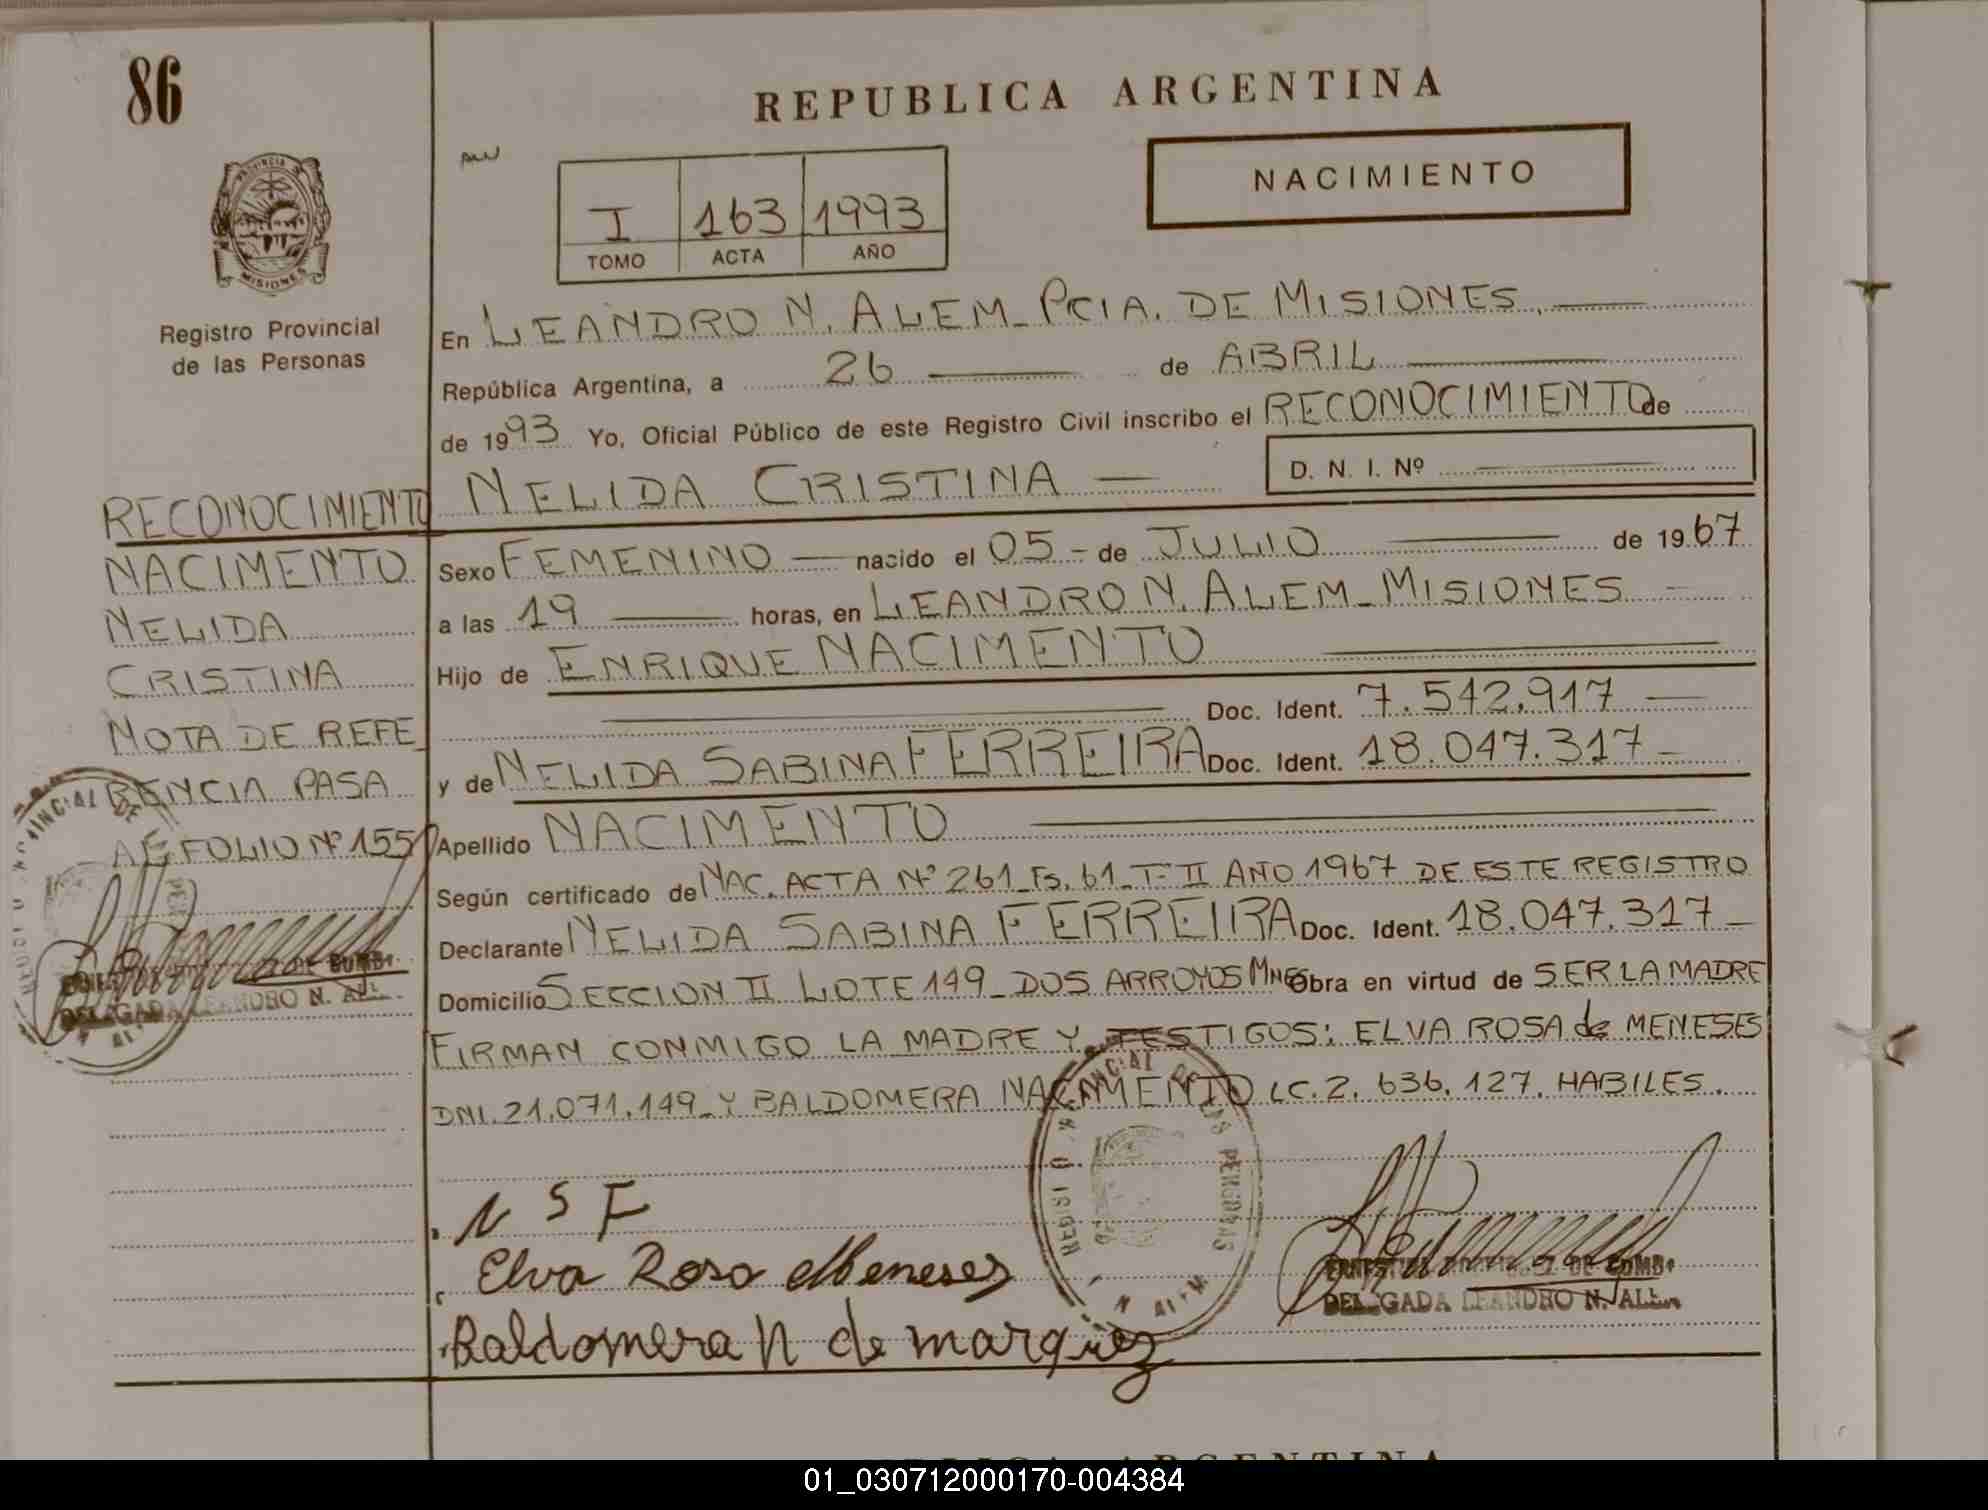 86
REPUBLICA ARGENTINA
NACIMIENTO
PROVINCIA
MISIONES
I 163 1993
TOMO ACTA AÑO
Registro Provincial
de las Personas
En LEANDRO N. ALEM_PCIA. DE MISIONES.
República Argentina, a 26 de ABRIL
de 1993 Yo, Oficial Público de este Registro Civil inscribo el RECONOCIMIENTO de
D. N. I. Nº
NELIDA CRISTINA
RECONOCIMIENTO
NACIMENTO
NELIDA
CRISTINA
NOTA DE REFE_
RENCIA PASA
AL FOLIO Nº 155
Sexo FEMENINO nacido el 05 de JULIO de 1967
a las 19 horas, en LEANDRO N. ALEM_MISIONES
Hijo de ENRIQUE NACIMENTO
Doc. Ident. 7.542.917
y de NELIDA SABINA FERREIRA Doc. Ident. 18.047.317
Apellido NACIMENTO
Según certificado de NAC. ACTA Nº 261_Fs. 61_T- II AÑO 1967 DE ESTE REGISTRO
Declarante NELIDA SABINA FERREIRA Doc. Ident. 18.047.317
Domicilio SECCION II LOTE 149_DOS ARROYOS MNES Obra en virtud de SER LA MADRE
FIRMAN CONMIGO LA MADRE Y TESTIGOS: ELVA ROSA de MENESES
DNI. 21.071.149_Y BALDOMERA NACIMENTO LC. 2.636.127. HABILES.
DELEGADA LEANDRO N. ALEM
N S F
Elva Rosa Meneses
Baldomera N de marquez
DELEGADA LEANDRO N. ALEM
REPUBLICA ARGENTINA
01_030712000170-004384